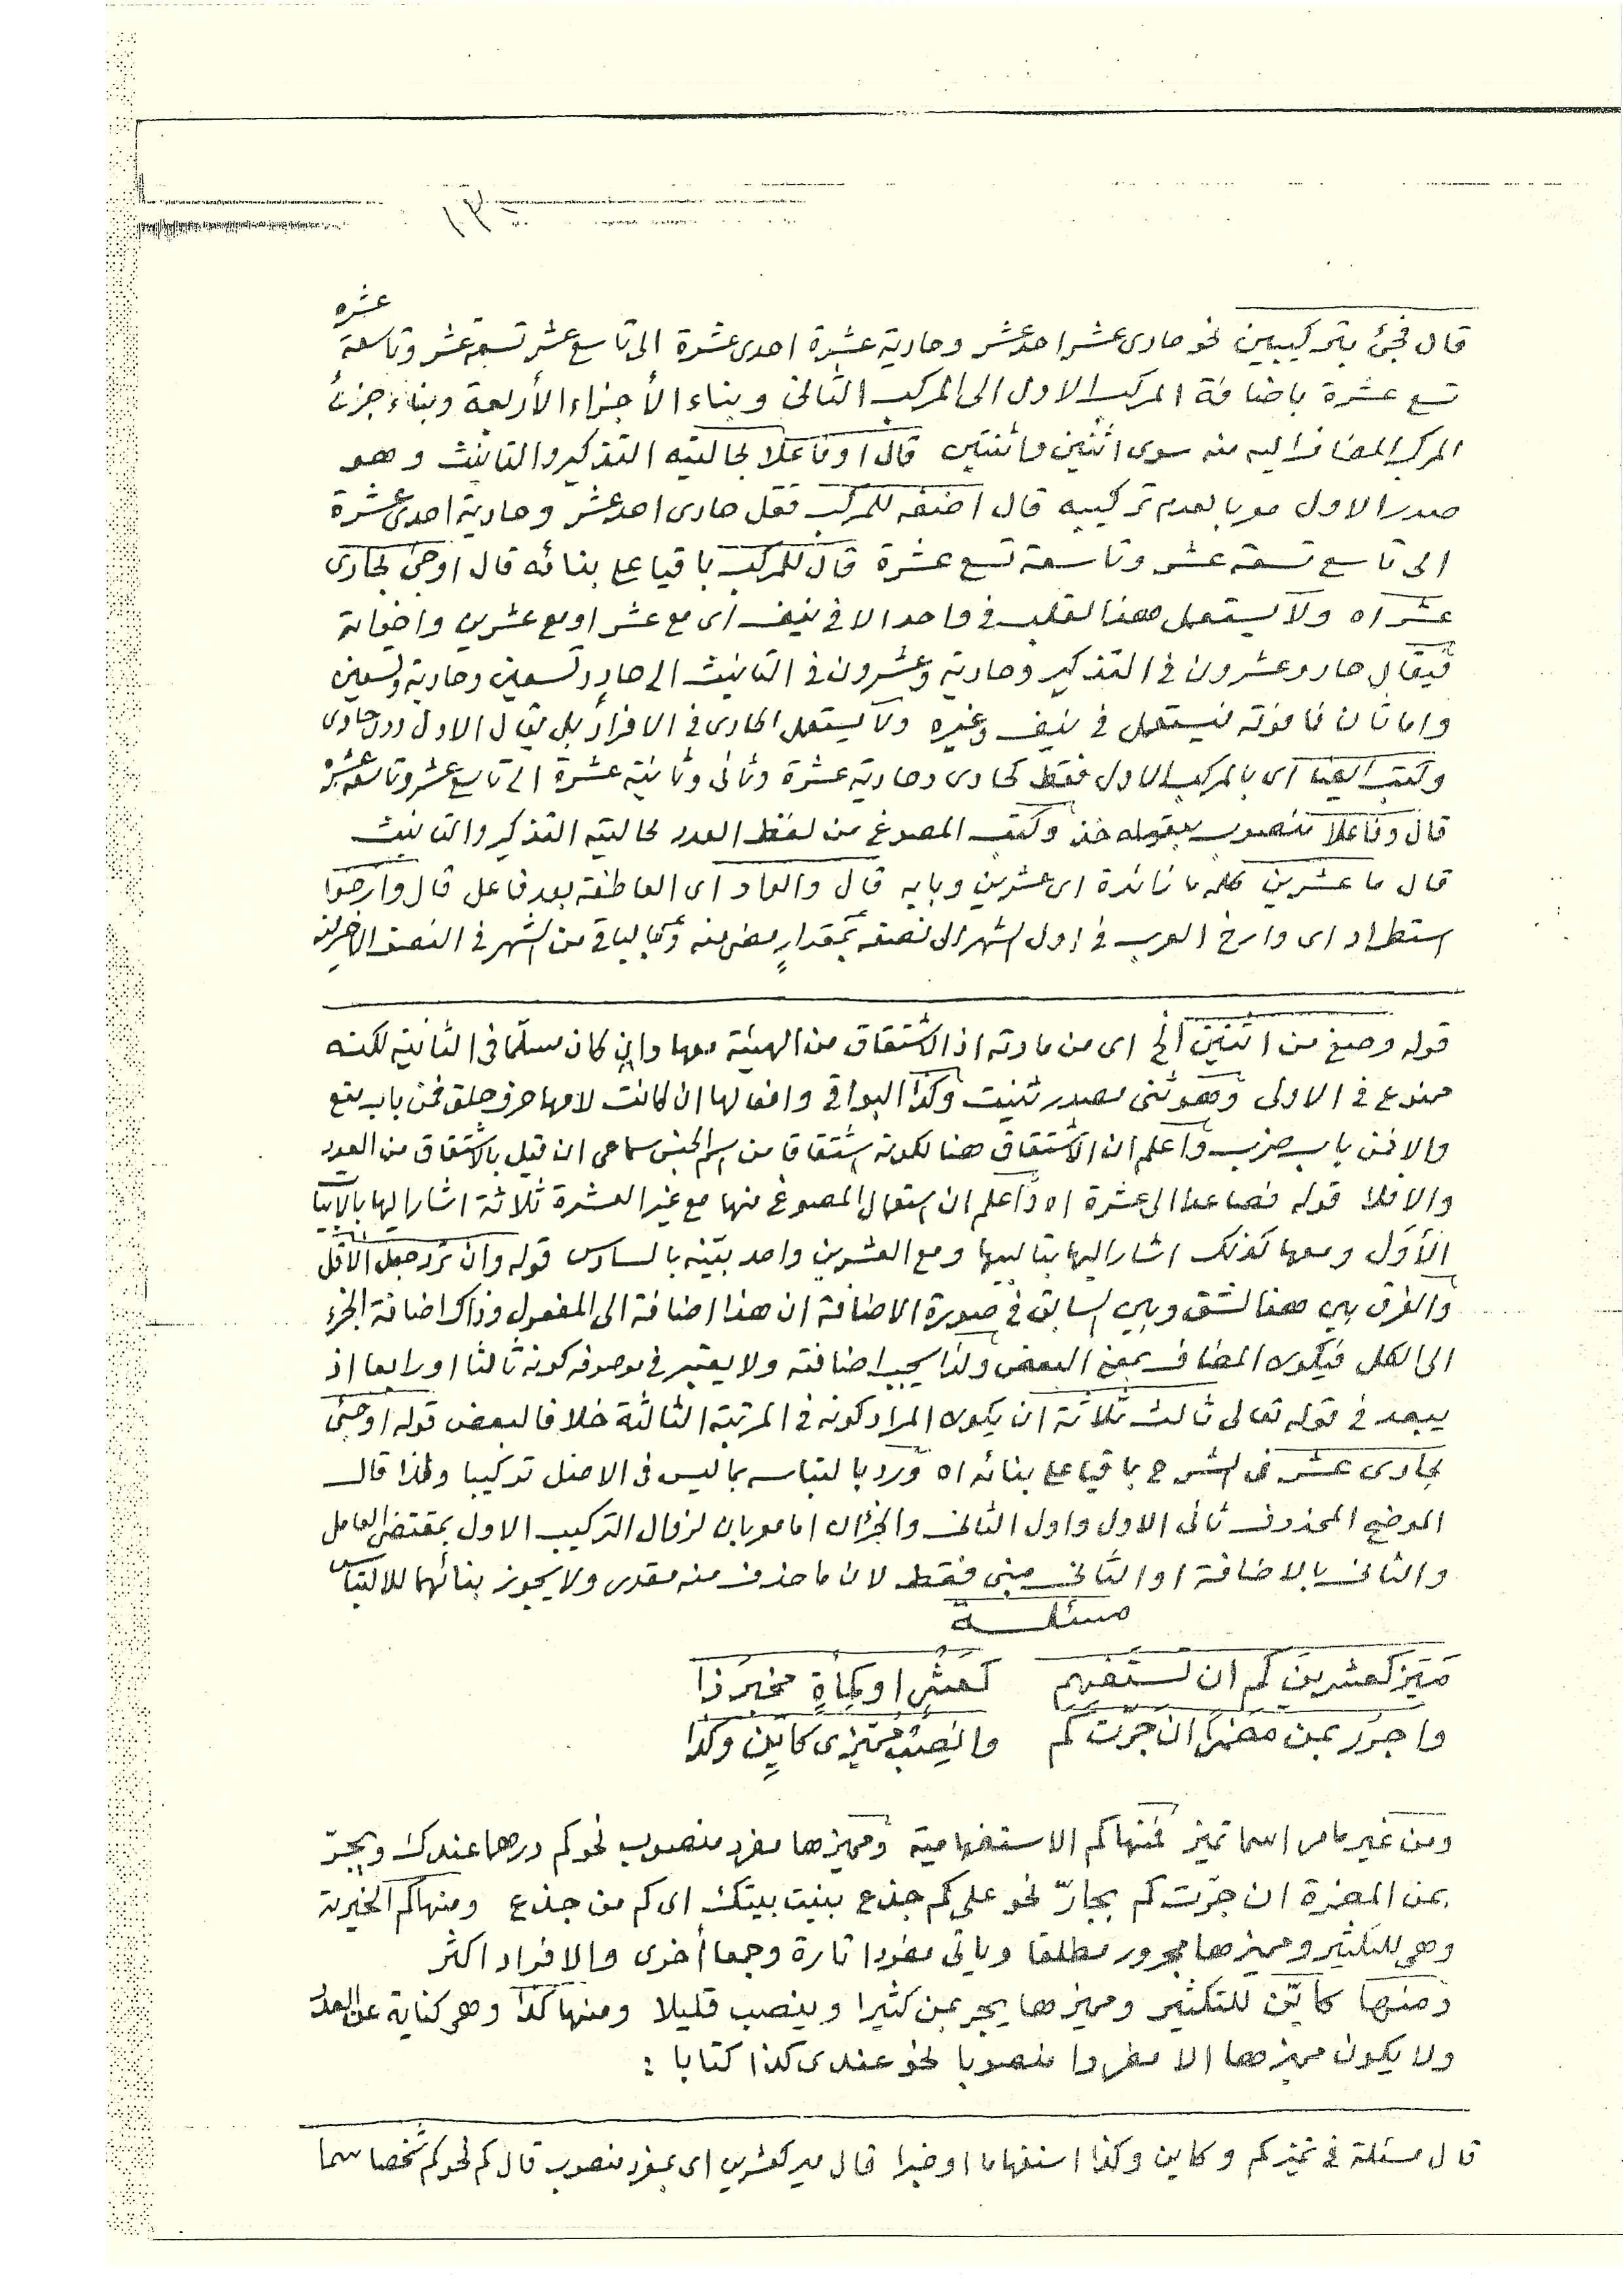 ١٣٠
قال فجئ بتركيبين نحو حادى عشر احد عشر وحادية عشرة احدى عشرة الى تاسع عشر تسعة عشر وتاسعة عشرة
تسع عشرة باضافة المركب الاول الى المركب الثانى وبناء الأجزاء الأربعة وبناء جزئ
المركب المضاف اليه منه سوى اثنين واثنتين قال او فاعلا بحالتيه التذكير والتانيث وهو
صدر الاول معربا لعدم تركيبه قال اضفه للمركب فقل حادى احد عشر وحادية احدى عشرة
الى تاسع تسعة عشر وتاسعة تسع عشرة قال للمركب باقيا على بنائه قال اوجئ بحادى
عشر اه ولا يستعمل هذا القلب فى واحد الا فى نيف اى مع عشر او مع عشرين واخواته
فيقال حاد وعشرون فى التذكير وحادية وعشرون فى التانيث الى حاد وتسعين وحادية وتسعين
واما ثان فما فوقه فيستعمل فى نيف وغيره ولا يستعمل الحادى فى الافراد بل يقال الاول دون حادى
وكتب ايضا اى بالمركب الاول فقط كحادى وحادية عشرة وثانى وثانية عشرة الى تاسع عشر وتاسعة عشرة
قال وفاعلا منصوب بقوله خذ وكتب المصوغ من لفظ العدد بحالتيه التذكير والتانيث
قال ما عشرين كلمة ما زائدة اى عشرين وبابه قال والواو اى العاطفة بعد فاعل قال وأرخوا
استطراد اى وارخ العرب فى اول الشهر الى نصفه بمقدارٍ مضى منه وبالباقى من الشهر فى النصف الاخير منه
قوله وصغ من اثنين الخ اى من مادته اذ الاشتقاق من الهيئة معها وان كان مسلّما فى الثانية لكنه
ممنوع فى الاولى وهو ثنى مصدر ثنيت وكذا البواقى وافعالها ان كانت لامها حرف حلق فمن باب منع
والا فمن باب ضرب واعلم ان الاشتقاق هنا لكونه اشتقاقا من اسم الجنس سماعى ان قيل بالاشتقاق من العدد
والا فلا قوله فصاعدا الى عشرة اه واعلم ان استعمال المصوغ منها مع غير العشرة ثلاثة اشار اليها بالابيات
الأوَل ومعها كذلك اشار اليها بتاليها ومع العشرين واحد بيّنه بالسادس قوله وان ترد جعل الاقل
والفرق بين هذا الشق وبين السابق فى صورة الاضافة ان هذا اضافة الى المفعول وذاك اضافة الجزء
الى الكل فيكون المضاف بمعنى البعض ولذا يجب اضافته ولا يعتبر فى موصوفه كونه ثالثا او رابعا اذ
يبعد فى قوله تعالى ثالث ثلاثة ان يكون المراد كونه فى المرتبة الثالثة خلافا لبعض قوله اوجئ
بحادى عشر فى الشرح باقيا على بنائه اه ورد بالتباسه بما ليس فى الاصل تركيبا ولهذا قال
الموضح المحذوف ثانى الاول واول الثانى والجزءان اما معربان لزوال التركيب الاول بمقتضى العامل
والثانى بالاضافة او الثانى مبنى فقط لان ما حذف منه مقدر ولا يجوز بنائهما للالتباس
مسئلة
مَيِّز كعشرين كم ان تستفهم كعشرٍ او كمأةٍ مخبرَ ذا
واجرُر بمن مضمَرًا ان جُرّت كم وانصِب مميّزى كاينٍ وكذا
ومن غير مامر اسما تميز فمنها كم الاستفهامية ومميزها مفرد منصوب نحو كم درهما عندك ويجرّ
بمن المضمرة ان جرّت كم بجارّ نحو على كم جذع بنيت بيتك اى كم من جذع ومنها كم الخبرية
وهى للتكثير ومميزها مجرور مطلقا وياتى مفردا تارة وجمعا أخرى والافراد اكثر
ومنها كايّن للتكثير ومميزها يجر بمن كثيرا وينصب قليلا ومنها كذا وهو كناية عن العدد
ولا يكون مميزها الا مفردا منصوبا نحو عندى كذا كتابا :
قال مسئلة فى تميز كم وكاين وكذا استفهاما او خبرا قال ميز كعشرين اى بمفرد منصوب قال كم نحو كم شخصا سما